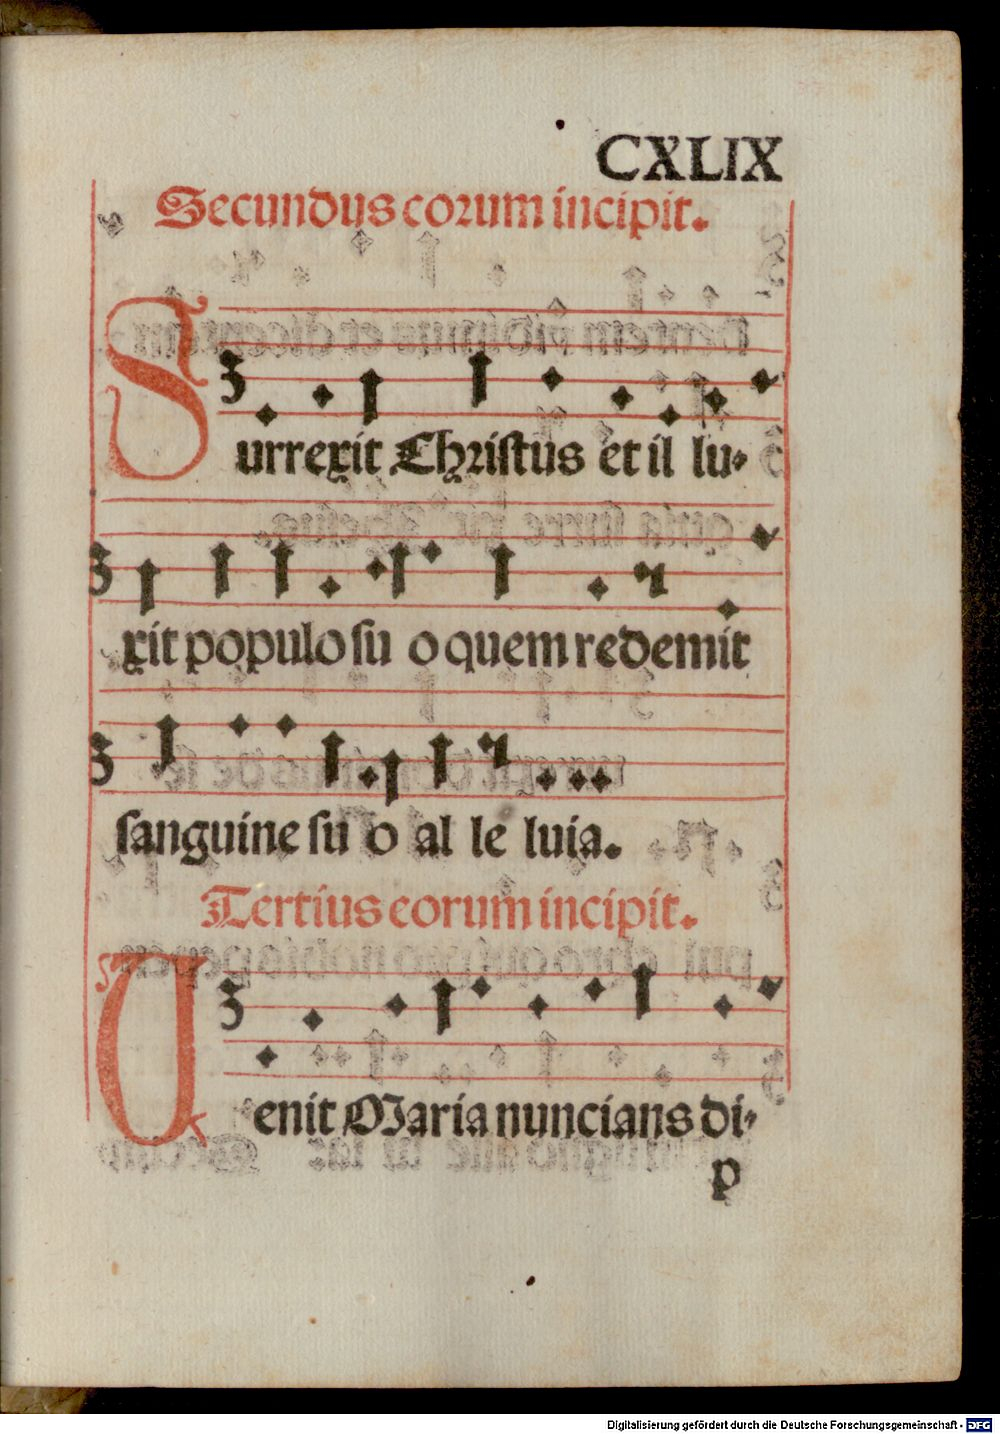 CXLIX
Secundus eorum incipit.
Surrexit Christus et il lu-
xit populo su o quem redemit
sanguine su o al le luia.
Tertius eorum incipit.
Uenit Maria nuncians di-
p
Digitalisierung gefördert durch die Deutsche Forschungsgemeinschaft - DFG